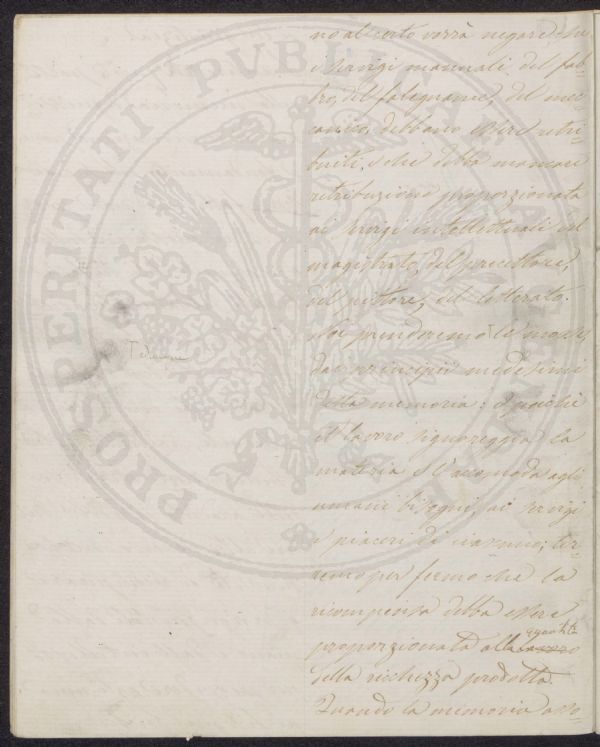 no al certo vorrà negare che
i servigi manuali del fab-
bro, del falegname, del mec-
canico, debbano essere retri-
buiti, e che debba mancare
retribuzione proporzionata
ai servigi intellettuali del
magistrato, del precettore,
del pittore, del letterato.
Noi prenderemo le mosse
dai principii medesimi
della memoria: e poiché
il lavoro signoreggia la
materia e l'accomoda agli
umani bisogni, ai servigi
e piaceri di ciascuno; ter-
remo per fermo che la
ricompensa debba essere
quantità
proporzionata alla lavoro
della ricchezza prodotta.
Quando la memoria asso-
PROSPERITATI PVBLICAE AVGENDAE